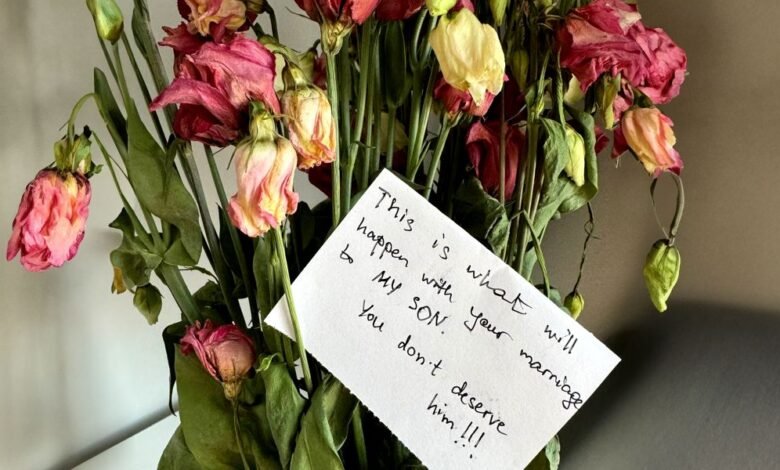 This is what will
happen with your marriage
to MY SON.
You don't deserve
him!!!